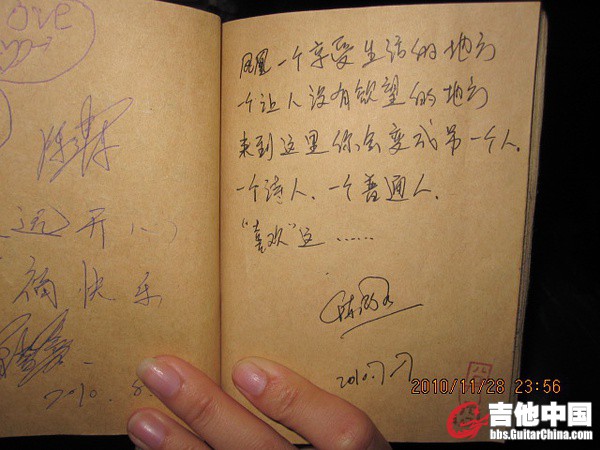 ove
开心
福快乐
2010.8.
凤凰一个享受生活的地方
一个让人没有欲望的地方
来到这里你会变成另一个人.
一个诗人.一个普通人.
"喜欢"这……
2010.7.7
2010/11/28 23:56
吉他中国
bbs.GuitarChina.com